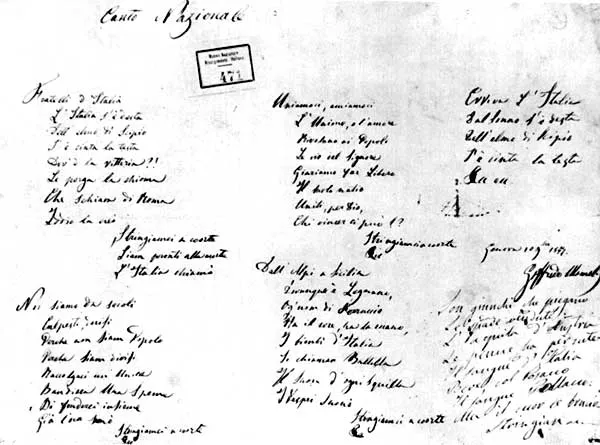 Canto Nazionale
Museo Nazionale
Risorgimento Italiano
471
Fratelli d'Italia
L'Italia s'è desta
Dell'elmo di Scipio
S'è cinta la testa
Dov'è la vittoria?!
Le porga la chioma
Che schiava di Roma
Iddio la creò
Stringiamci a coorte
Siam pronti alla morte
L'Italia chiamò
Noi siamo da secoli
Calpesti, derisi
Perché non siam Popolo
Perché siam divisi
Raccolgaci un'Unica
Bandiera Una Speme
Di fonderci insieme
Già l'ora suonò
Stringiamci a coorte
Uniamoci, amiamoci
L'Unione, e l'amore
Rivelano ai Popoli
Le vie del Signore
Giuriamo far Libero
Il suolo natio
Uniti, per Dio,
Chi vincer ci può!?
Stringiamci a coorte
Dall'Alpi a Sicilia
Dovunque è Legnano,
Ogn'uom di Ferruccio
Ha il core, ha la mano,
I bimbi d'Italia
Si chiaman Balilla
Il Suon d'ogni Squilla
I Vespri Suonò
Stringiamci a coorte
Evviva l'Italia
Dal sonno s'è desta
Dell'elmo di Scipio
S'è cinta la testa
Genova
Goffredo Mameli
Son giunchi che piegano
Le Spade vendute
L'Aquila d'Austria
Le penne ha perdute
Il sangue d'Italia
Bevé col Cosacco
Il sangue Polacco
Ma il cuor le bruciò
Stringiamci